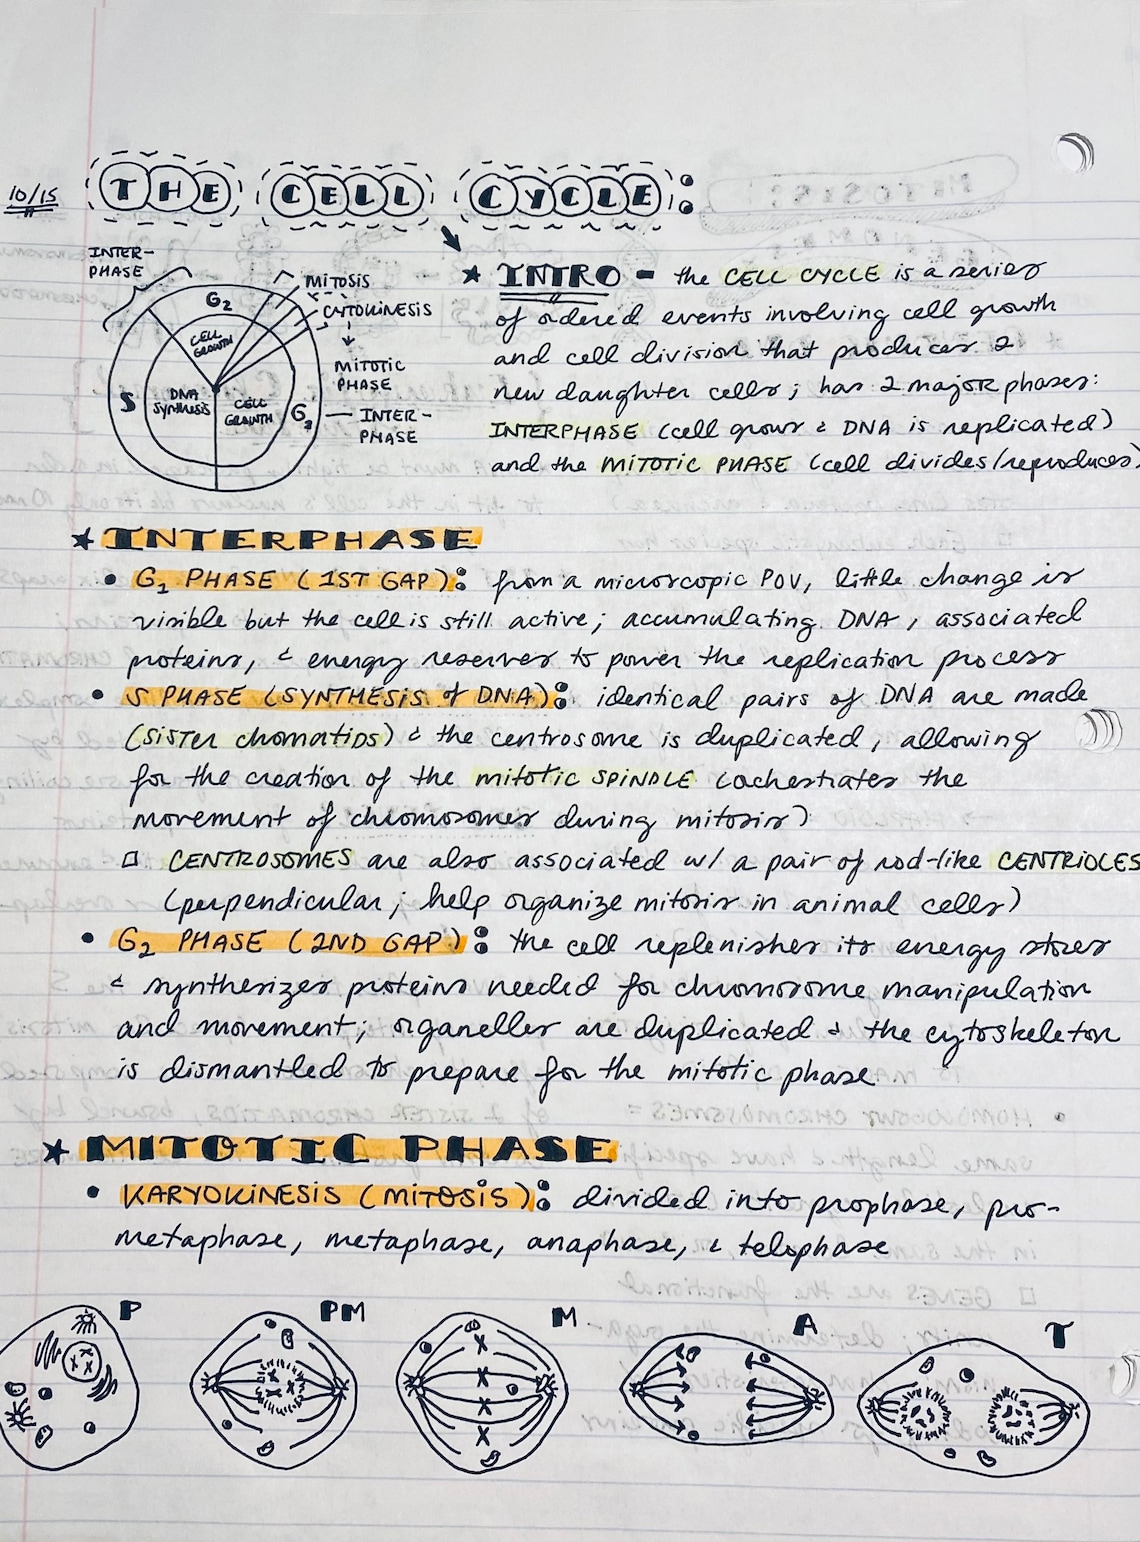 10/15
THE CELL CYCLE:
INTER-
PHASE
G2
CELL
GROWTH
MITOSIS
CYTOKINESIS
MITOTIC
PHASE
S
DNA
Synthesis
CELL
GROWTH
INTER-
PHASE
★ INTRO - the CELL CYCLE is a series
of ordered events involving cell growth
and cell division that produces 2
new daughter cells; has 2 major phases:
INTERPHASE (cell grows & DNA is replicated)
and the MITOTIC PHASE (cell divides/reproduces)
★ INTERPHASE
• G1 PHASE (1ST GAP): from a microscopic POV, little change is
visible but the cell is still active; accumulating DNA, associated
proteins, & energy reserves to power the replication process
• S PHASE (SYNTHESIS of DNA): identical pairs of DNA are made
(SISTER chomatids) & the centrosome is duplicated, allowing
for the creation of the mitotic SPINDLE (ochestrates the
movement of chromosomes during mitosis)
□ CENTROSOMES are also associated w/ a pair of rod-like CENTRIOLES
(perpendicular; help organize mitosis in animal cells)
• G2 PHASE (2ND GAP): the cell replenishes its energy stores
& synthesizes proteins needed for chromosome manipulation
and movement; organelles are duplicated & the cytoskeleton
is dismantled to prepare for the mitotic phase
★ MITOTIC PHASE
• KARYOKINESIS (MITOSIS): divided into prophase, pro-
metaphase, metaphase, anaphase, & telophase
P PM M A T